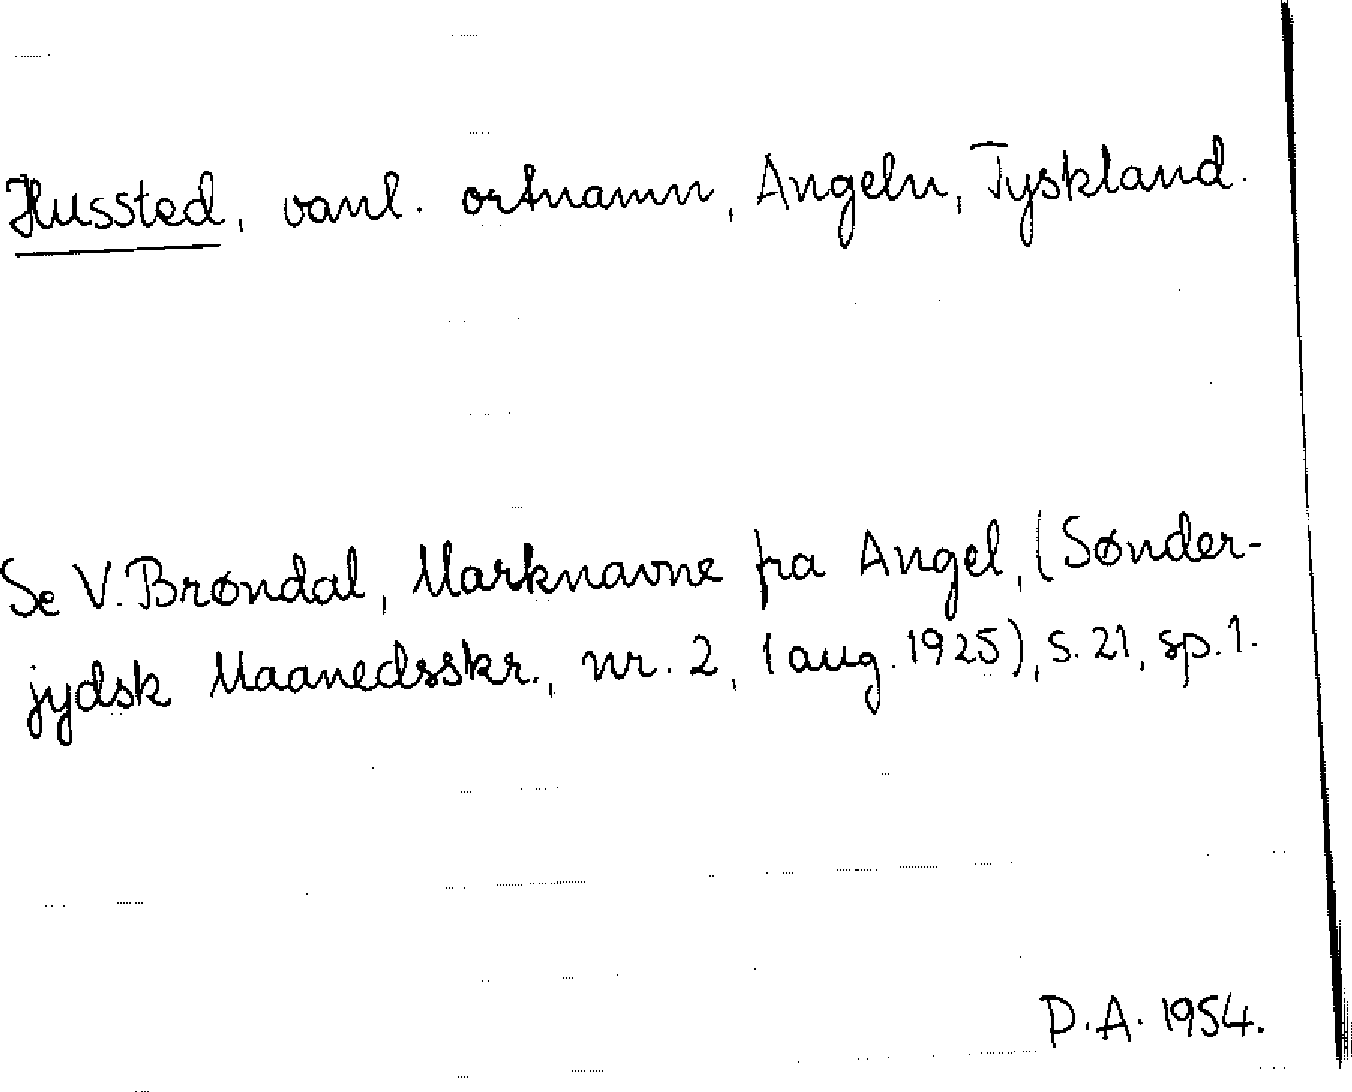 Hussted, vanl. ortnamn, Angeln, Tyskland.
Se V. Brøndal, Marknavne fra Angel, (Sønder-
jydsk Maanedsskr., nr. 2, 1 aug. 1925), s. 21, sp. 1.
D.A. 1954.